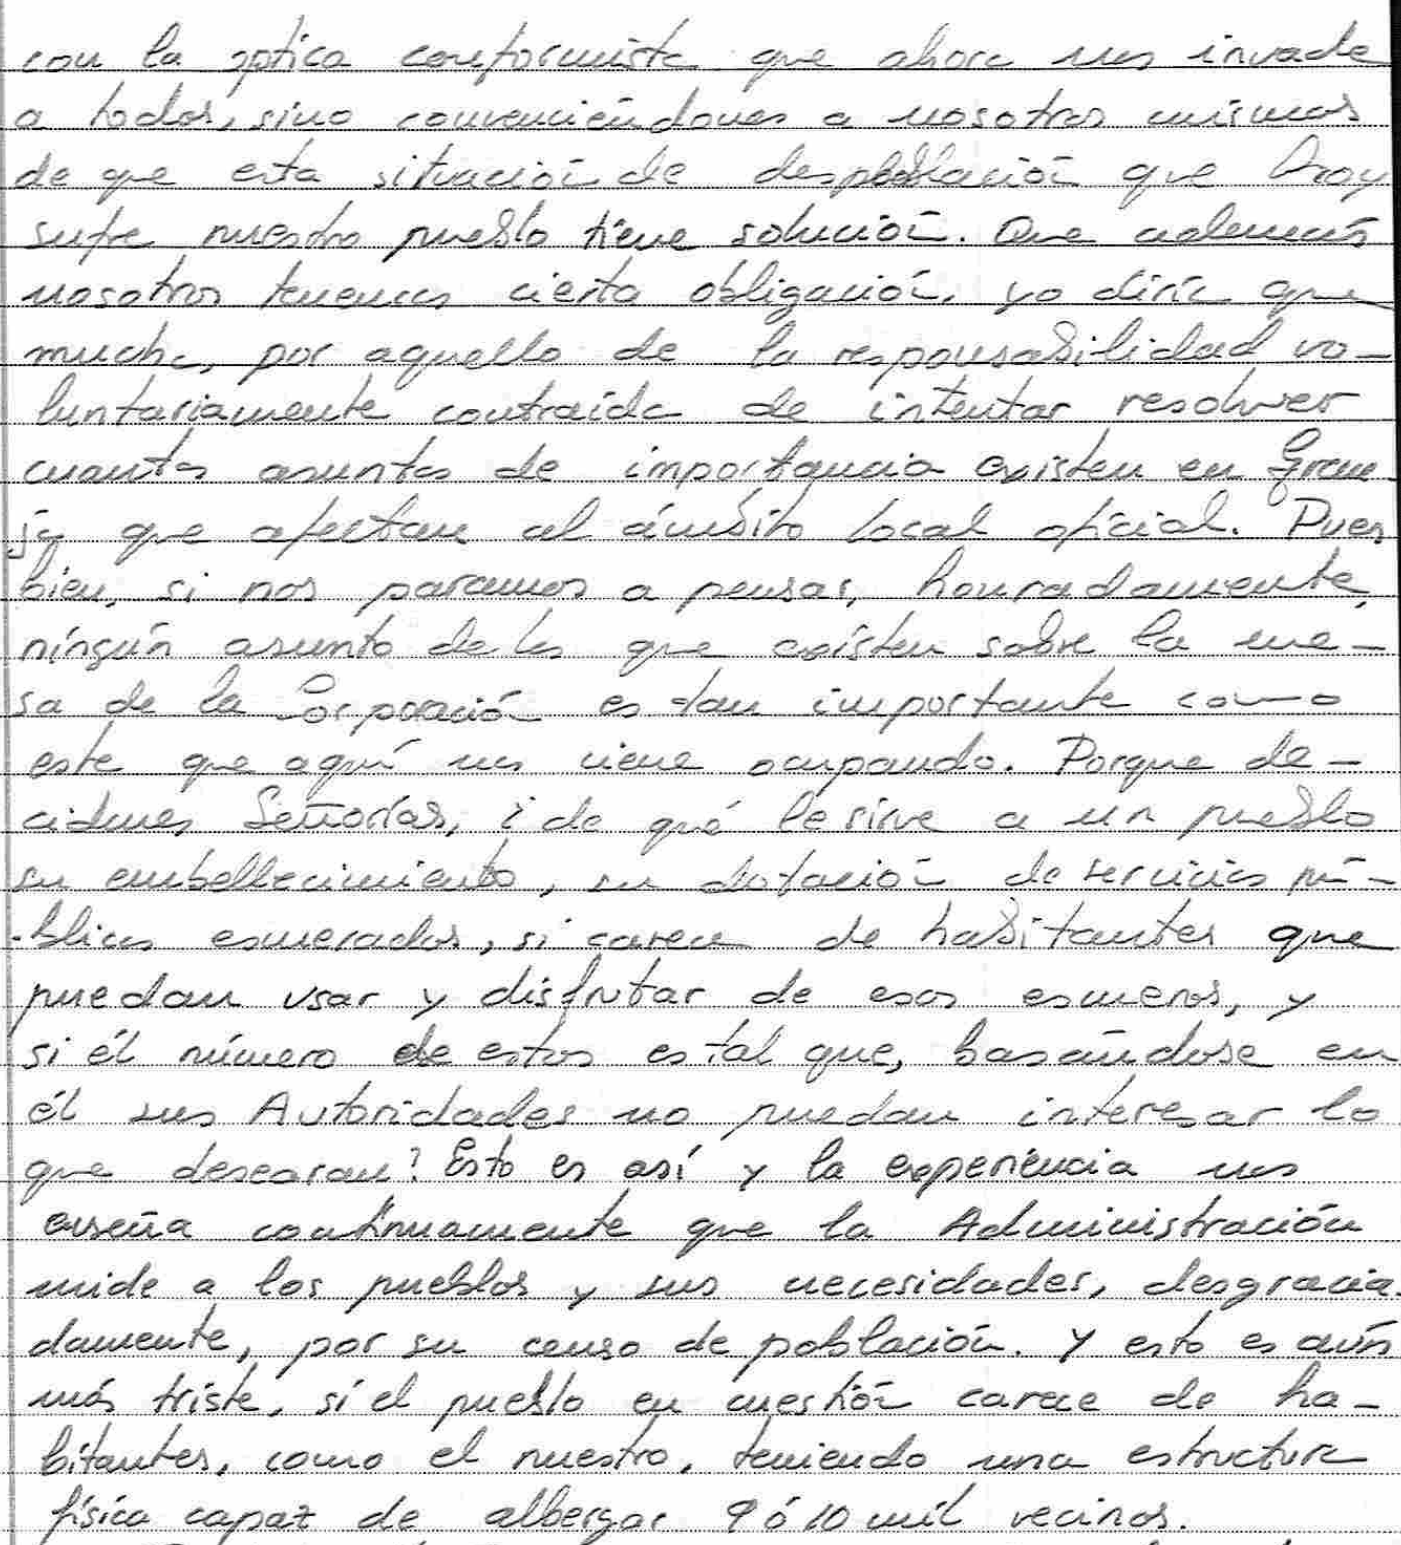 con la óptica conformista que ahora nos invade
a todos, sino convenciéndonos a nosotros mismos
de que esta situación de despoblación que hoy
sufre nuestro pueblo tiene solución. Que además
nosotros tenemos cierta obligación, yo diría que
mucha, por aquello de la responsabilidad vo-
luntariamente contraída de intentar resolver
cuantos asuntos de importancia existen en Gran-
ja que afectan al ámbito local oficial. Pues
bien, si nos paramos a pensar, honradamente,
ningún asunto de los que existen sobre la me-
sa de la Corporación es tan importante como
este que aquí nos viene ocupando. Porque de-
cidme, Señorías, ¿de qué le sirve a un pueblo
su embellecimiento, su dotación de servicios pú-
blicos esmerados, si carece de habitantes que
puedan usar y disfrutar de esos esmeros, y
si él número de estos es tal que, basándose en
él sus Autoridades no puedan interesar lo
que desearan? Esto es así y la experiencia nos
enseña continuamente que la Administración
mide a los pueblos y sus necesidades, desgracia-
damente, por su censo de población. Y esto es aún
más triste, si el pueblo en cuestión carece de ha-
bitantes, como el nuestro, teniendo una estructura
física capaz de albergar 9 ó 10 mil vecinos.